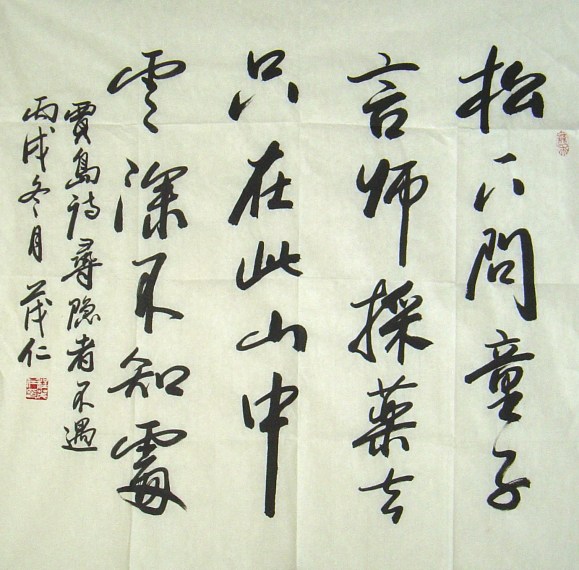 松下問童子
言师採薬去
只在此山中
雲深不知處
賈島诗尋隐者不遇
丙戌冬月 茂仁